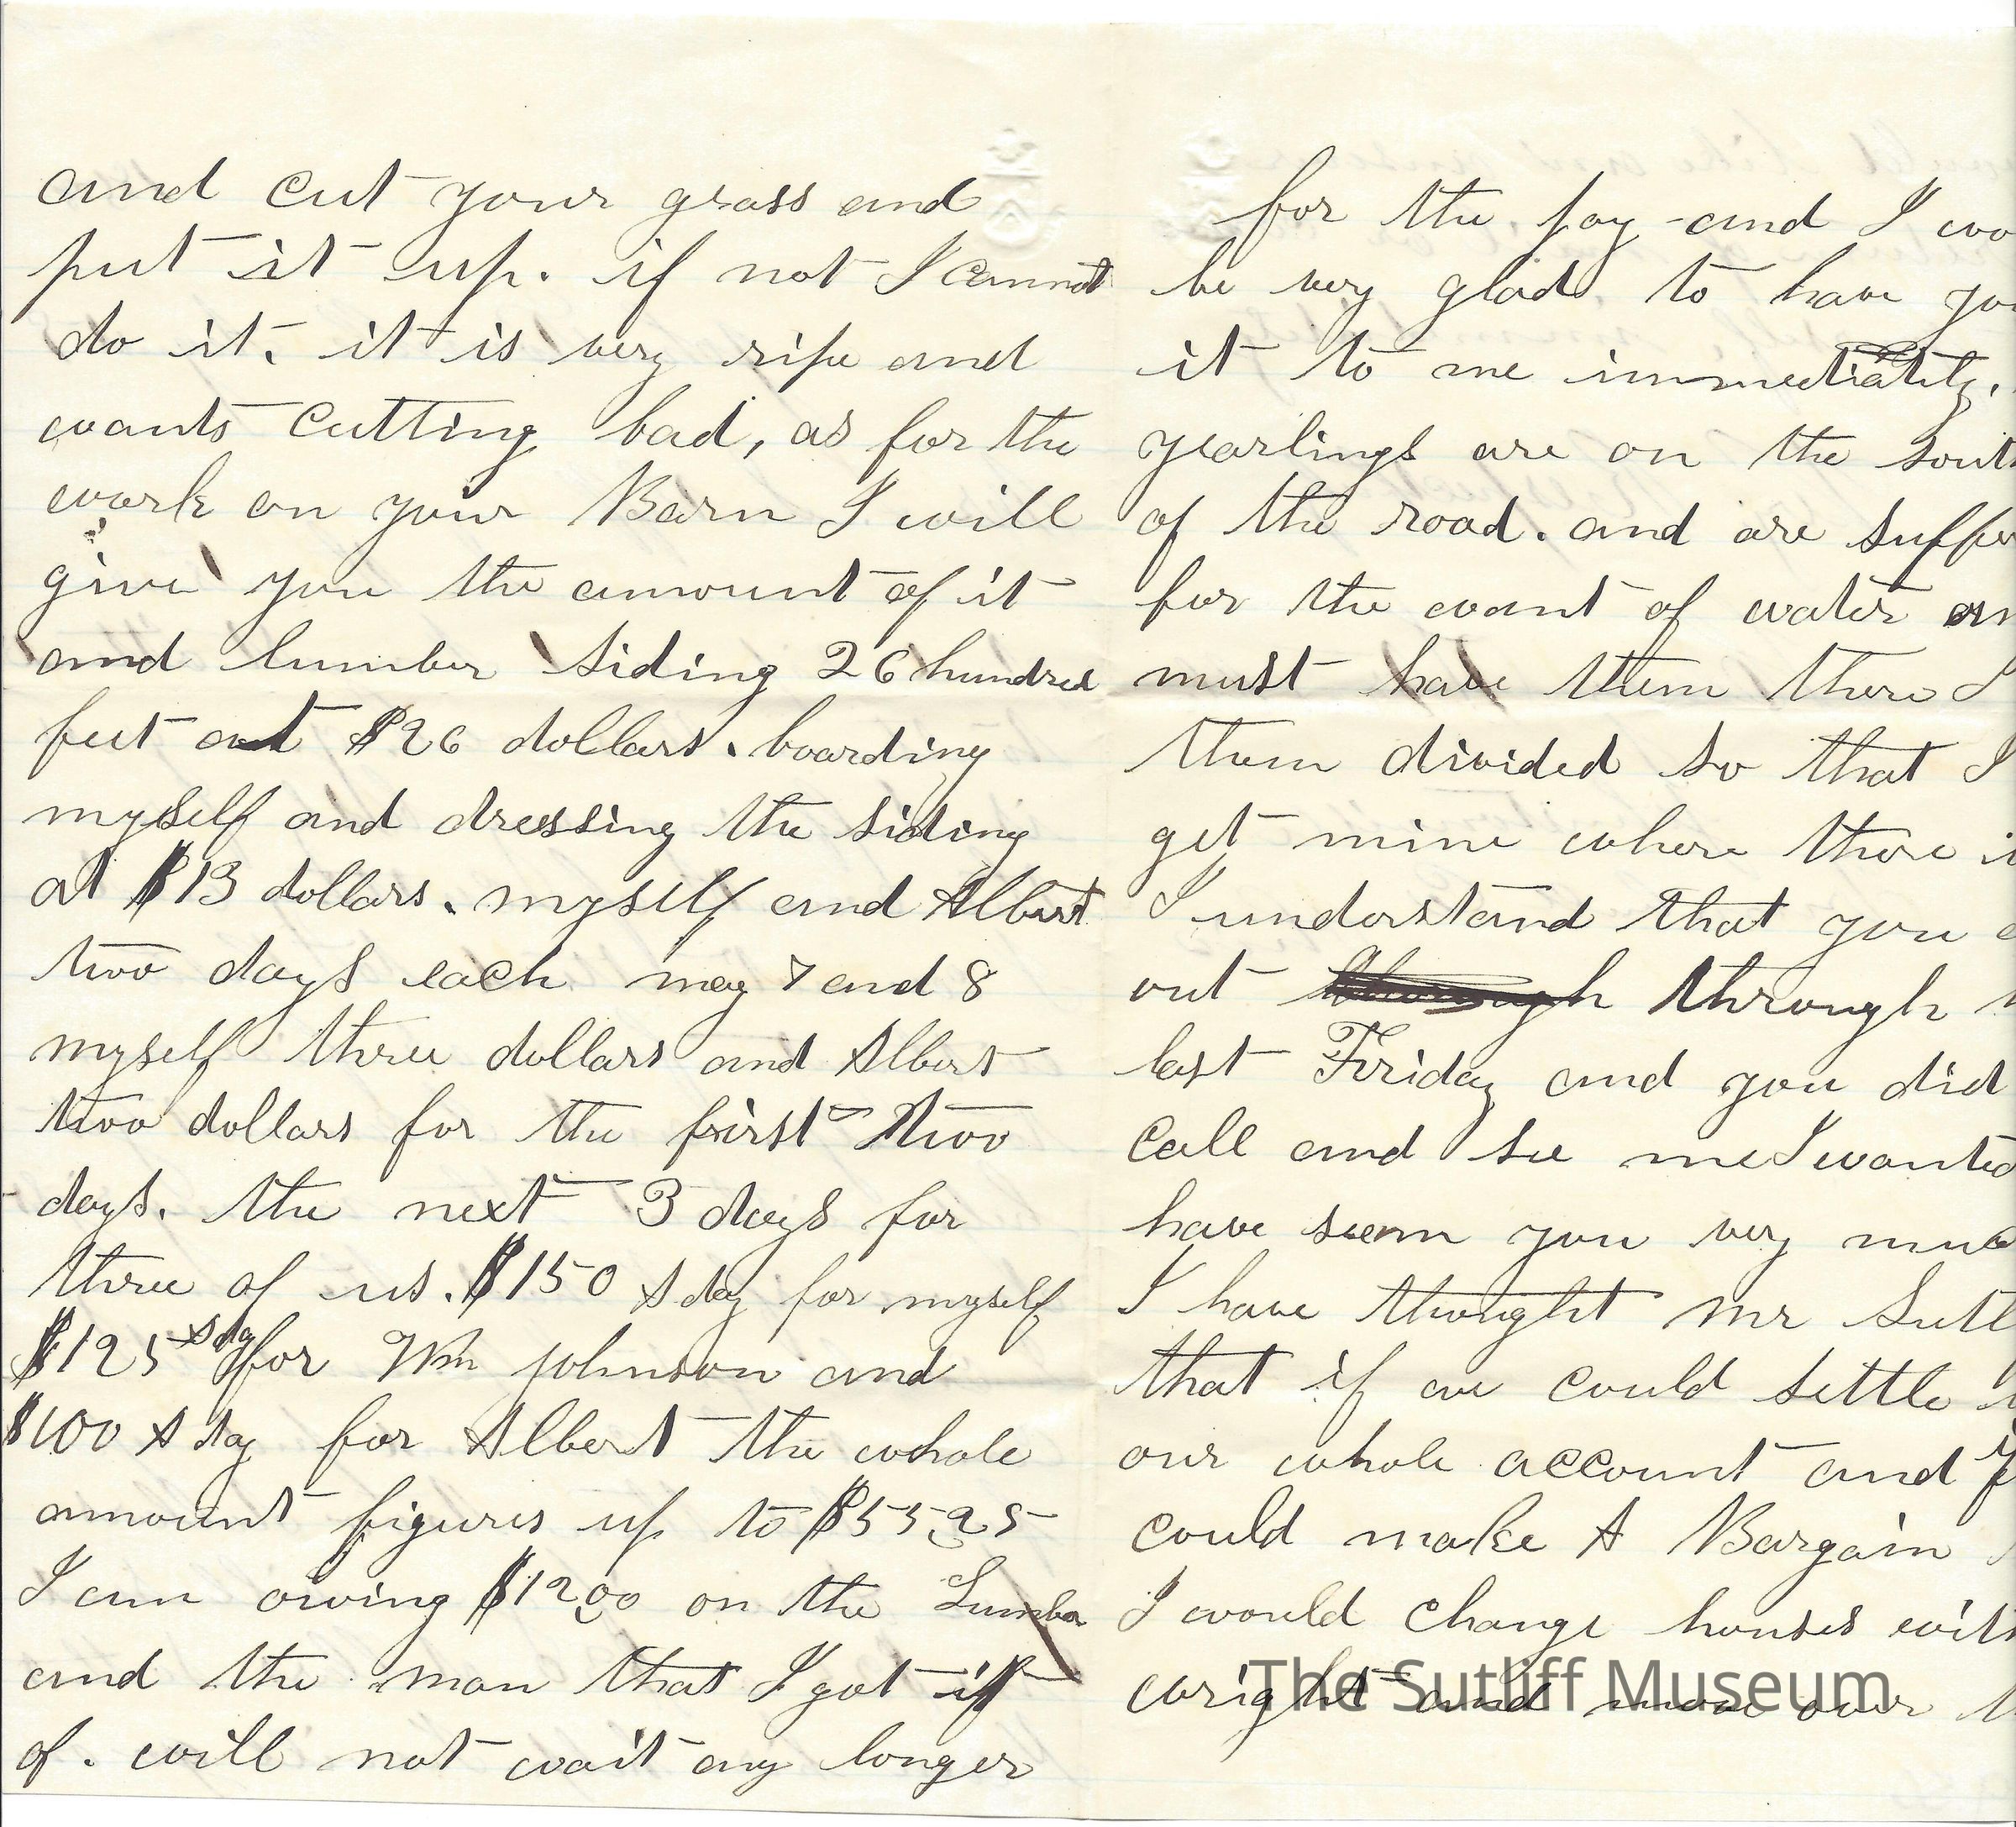 and cut your grass and
put it up. if not I cannot
do it. it is very ripe and
wants cutting bad, as for the
work on your Barn I will
give you the amount of it
and lumber siding 26 hundred
feet at $26 dollars. boarding
myself and dressing the siding
at $13 dollars. myself and Albert
two days each may 7 and 8
myself three dollars and Albert
two dollars for the first two
days. the next 3 days for
three of us. $150 A day for myself
$125 A day for Wm Johnson and
$100 A day for Albert the whole
amount figures up to $55.25
I am owing $12.00 on the Lumber
and the man that I got it
of. will not wait any longer
for the pay and I wo
be very glad to have yo
it to me immediatily.
yearlings are on the sout
of the road. and are suffer
for the want of water an
must have them there I
them divided so that I
get mine where there i
I understand that you
out through
last Friday and you did
call and see me I wanted
have seem you very muc
I have thought mr Sutl
that if we could settle
our whole account and
could make A Bargain
I would change houses with
wright and move our
The Sutliff Museum